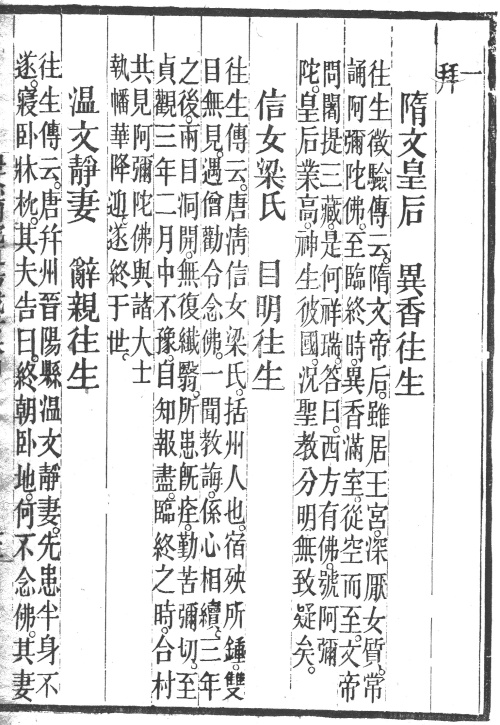 一
拜
隋文皇后　異香往生
往生徵驗傳云。隋文帝后。雖居王宮。深厭女質。常
誦阿彌陀佛。至臨終時。異香滿室。從空而至。文帝
問闍提三藏。是何祥瑞。答曰。西方有佛。號阿彌
陀。皇后業高。神生彼國。況聖教分明。無致疑矣。
信女梁氏　目明往生
往生傳云。唐清信女梁氏。括州人也。宿殃所鍾。雙
目無見。遇僧勸令念佛。一聞教誨。係心相續。三年
之後。兩目洞開。無復纖翳。所患既痊。勤苦彌切。至
貞觀三年二月中不豫。自知報盡。臨終之時。合村
共見阿彌陀佛與諸大士
執幡華降迎。遂終于世。
溫文靜妻　辭親往生
往生傳云。唐幷州晉陽縣溫文靜妻。先患半身不
遂。寢卧牀枕。其夫告曰。終朝卧地。何不念佛。其妻